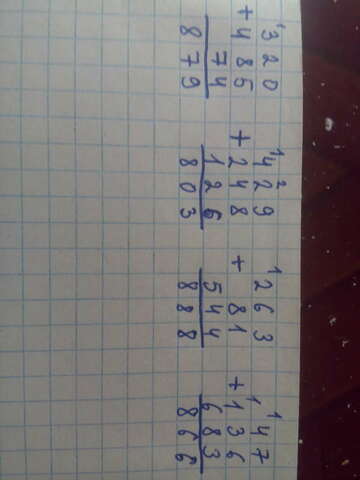 1
320
+
485
74
879
1 2
429
+
248
126
803
1
263
+
81
544
888
1 1
47
+
136
683
866